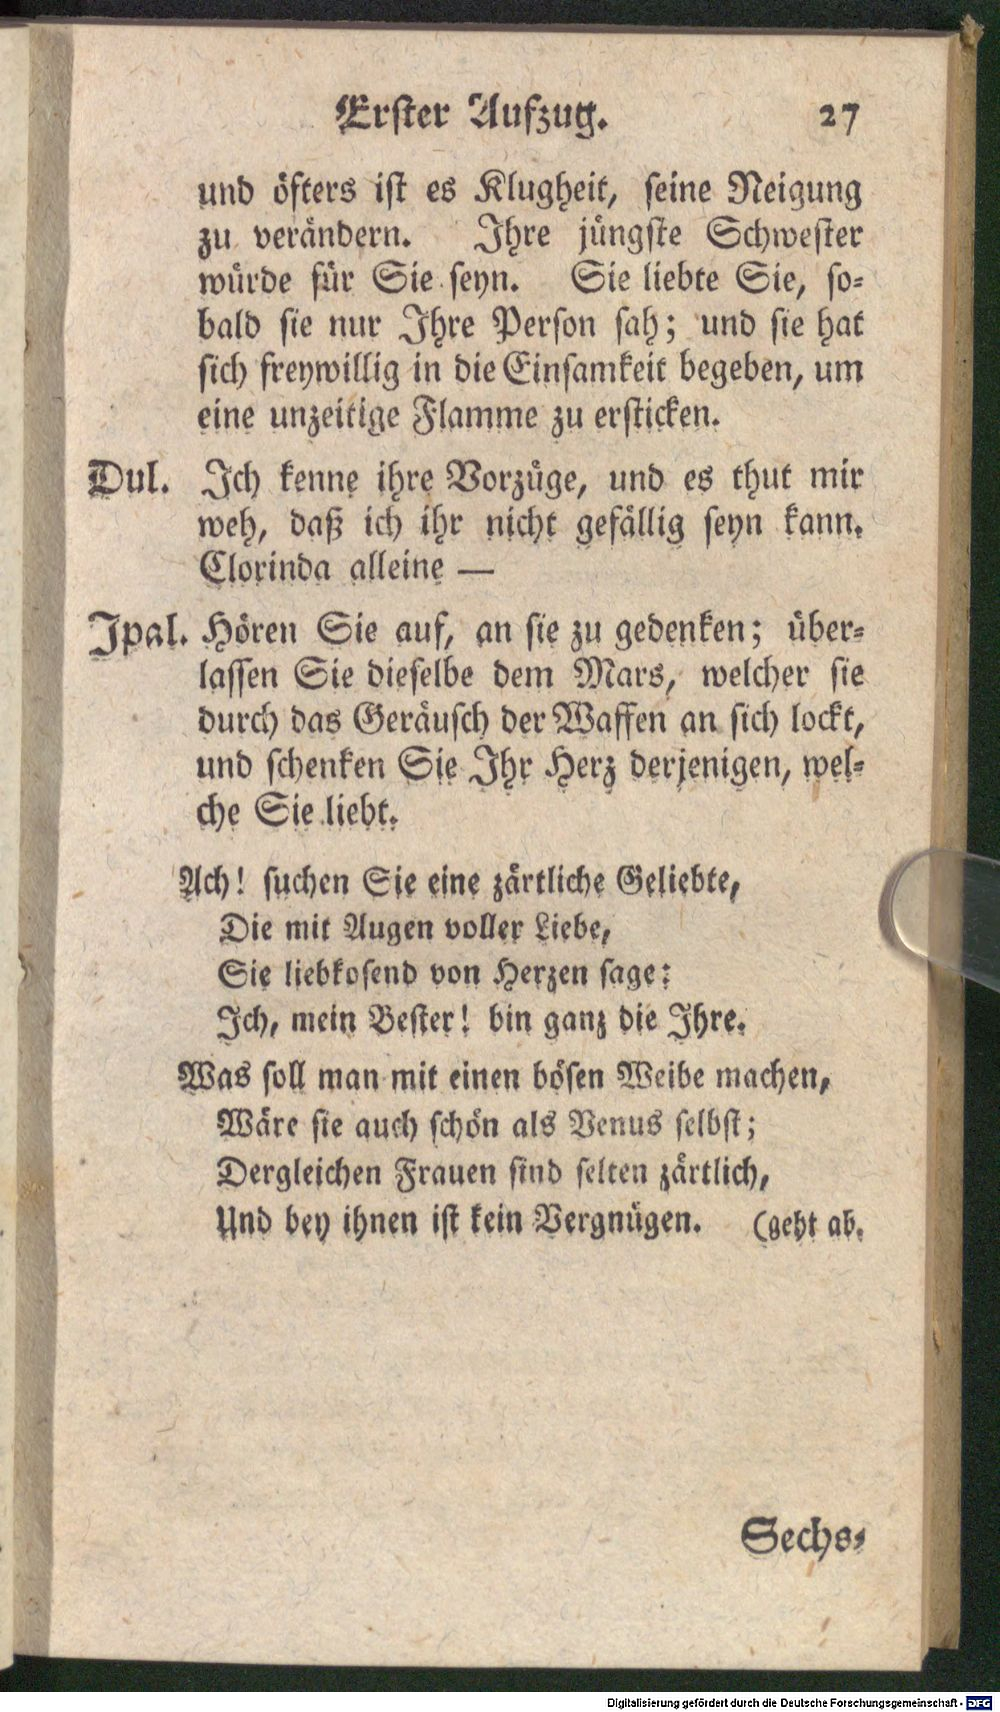 Erster Aufzug. 27
und öfters ist es Klugheit, seine Neigung
zu verändern. Ihre jüngste Schwester
würde für Sie seyn. Sie liebte Sie, so-
bald sie nur Ihre Person sah; und sie hat
sich freywillig in die Einsamkeit begeben, um
eine unzeitige Flamme zu ersticken.
Dul. Ich kenne ihre Vorzüge, und es thut mir
weh, daß ich ihr nicht gefällig seyn kann.
Clorinda alleine —
Ipal. Hören Sie auf, an sie zu gedenken; über-
lassen Sie dieselbe dem Mars, welcher sie
durch das Geräusch der Waffen an sich lockt,
und schenken Sie Ihr Herz derjenigen, wel-
che Sie liebt.
Ach! suchen Sie eine zärtliche Geliebte,
Die mit Augen voller Liebe,
Sie liebkosend von Herzen sage:
Ich, mein Bester! bin ganz die Ihre.
Was soll man mit einen bösen Weibe machen,
Wäre sie auch schön als Venus selbst;
Dergleichen Frauen sind selten zärtlich,
Und bey ihnen ist kein Vergnügen. (geht ab.
Sechs-
Digitalisierung gefördert durch die Deutsche Forschungsgemeinschaft - DFG